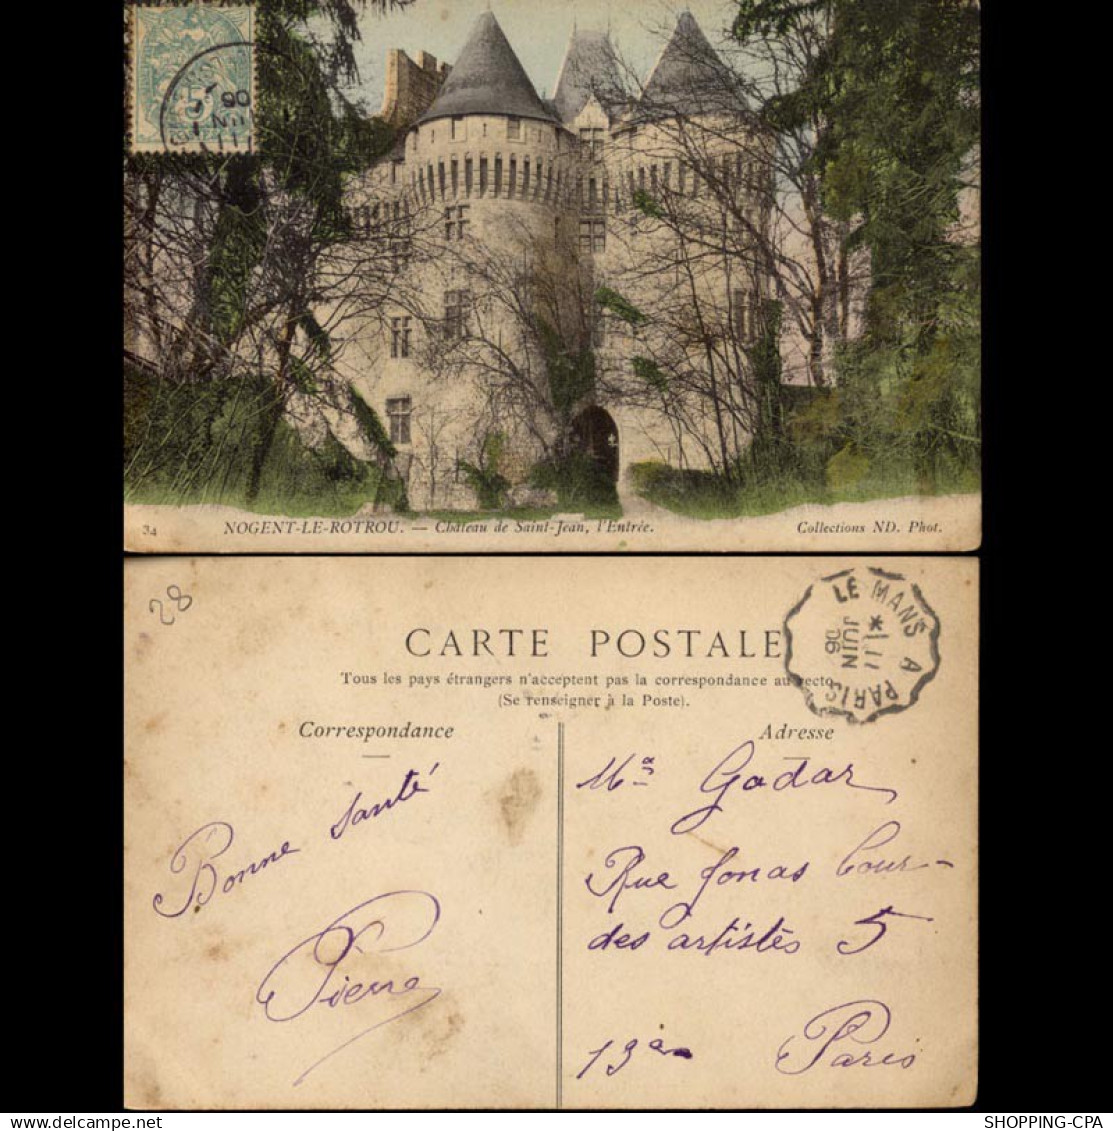 5
34 NOGENT-LE-ROTROU. — Château de Saint-Jean, l'Entrée. Collections ND. Phot.
28
CARTE POSTALE
Tous les pays étrangers n'acceptent pas la correspondance au recto
(Se renseigner à la Poste).
LE MANS A PARIS
11
JUIN
06
Correspondance
Adresse
Bonne santé
Pierre
Godar
Rue Jonas Cour-
des artistes 5
13e
Paris
SHOPPING-CPA